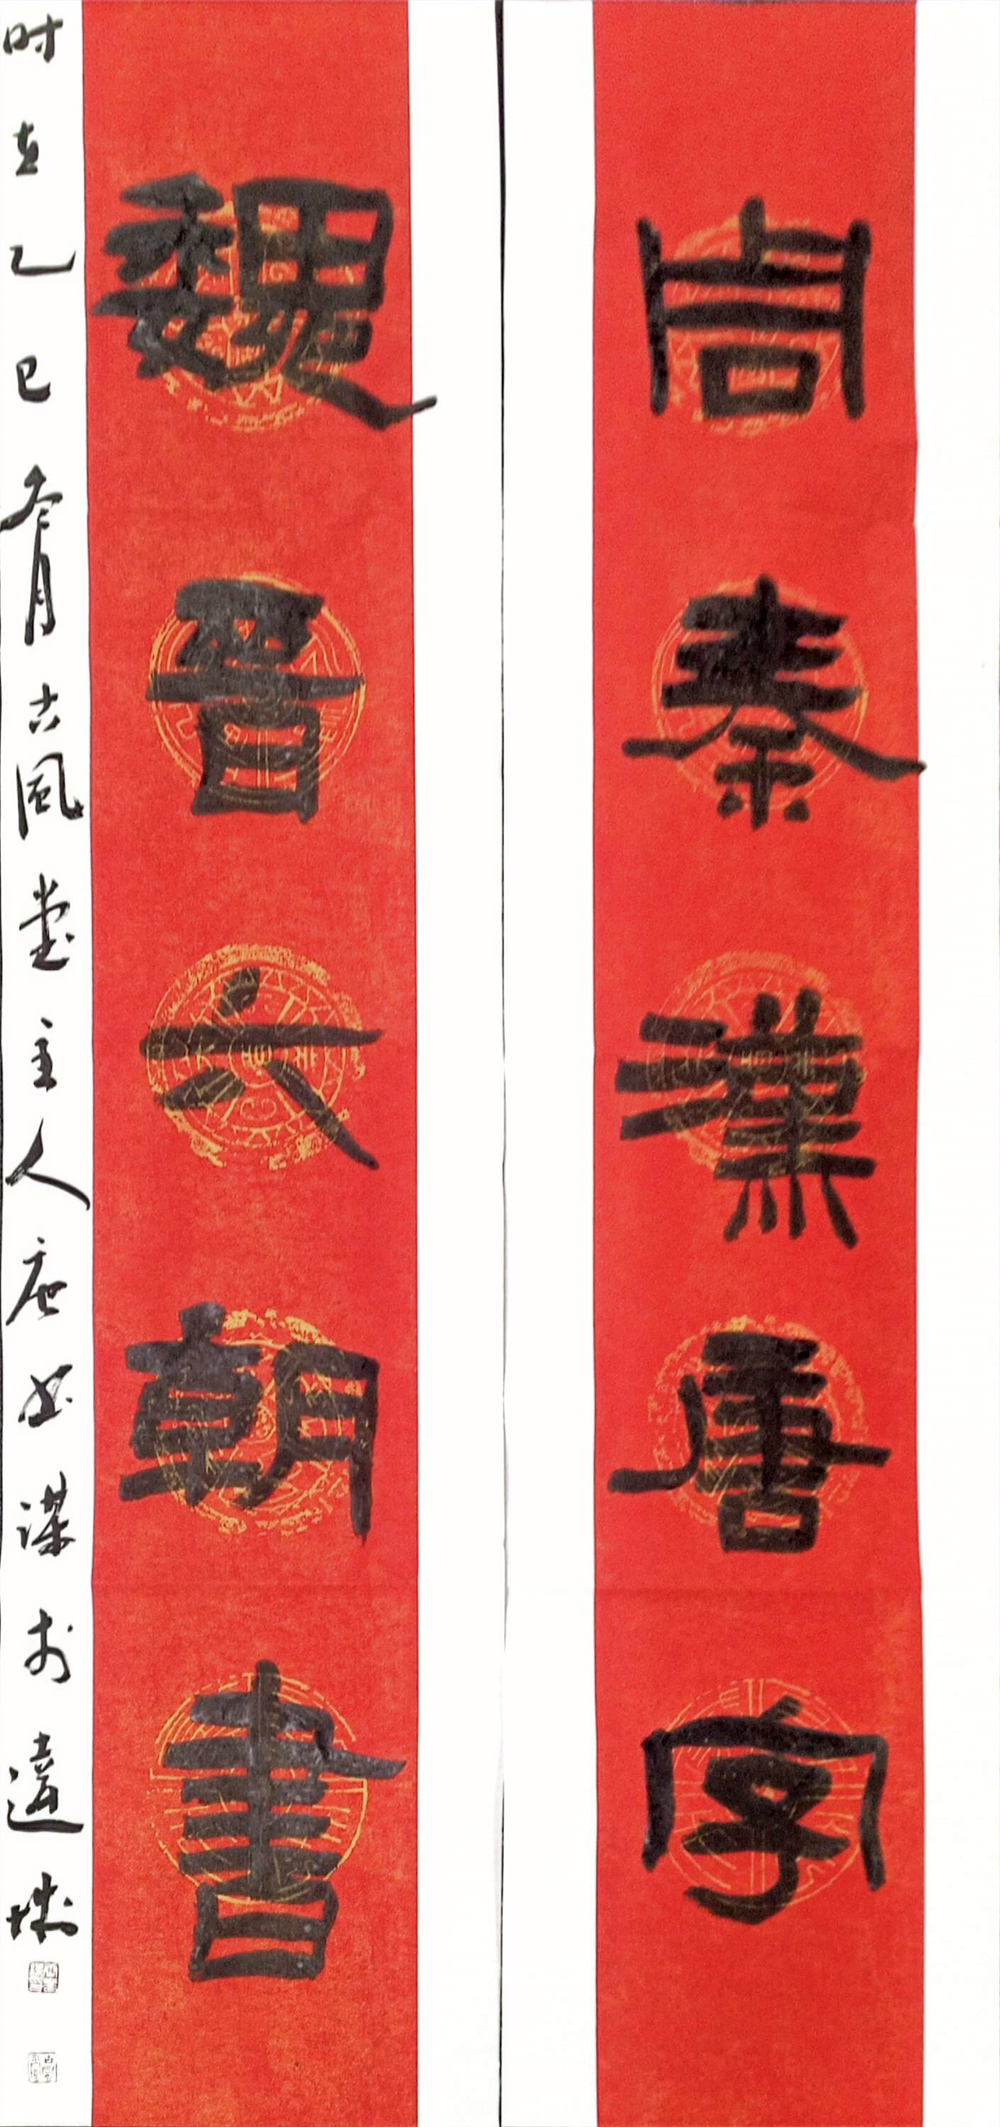 周秦漢唐字
魏晉六朝書
时在乙巳冬月古风堂主人唐世謀书